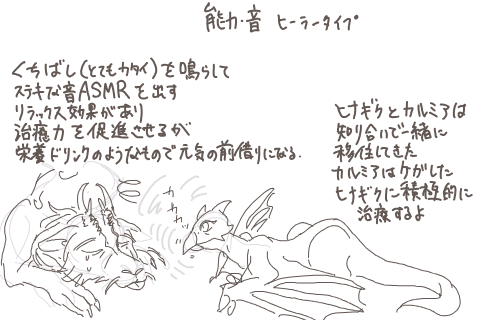 能力・音 ヒーラータイプ
くちばし(とてもカタイ)を鳴らして
ステキな音ASMRを出す
リラックス効果があり
治癒力を促進させるが
栄養ドリンクのようなもので元気の前借りになる.
ヒナギクとカルミアは
知り合いで一緒に
移住してきた
カルミアはケガした
ヒナギクに積極的に
治療するよ
カカカッ